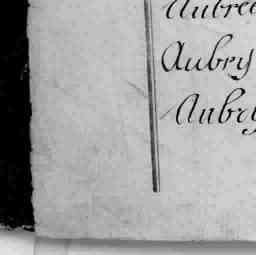 Aubree
Aubry
Aubry